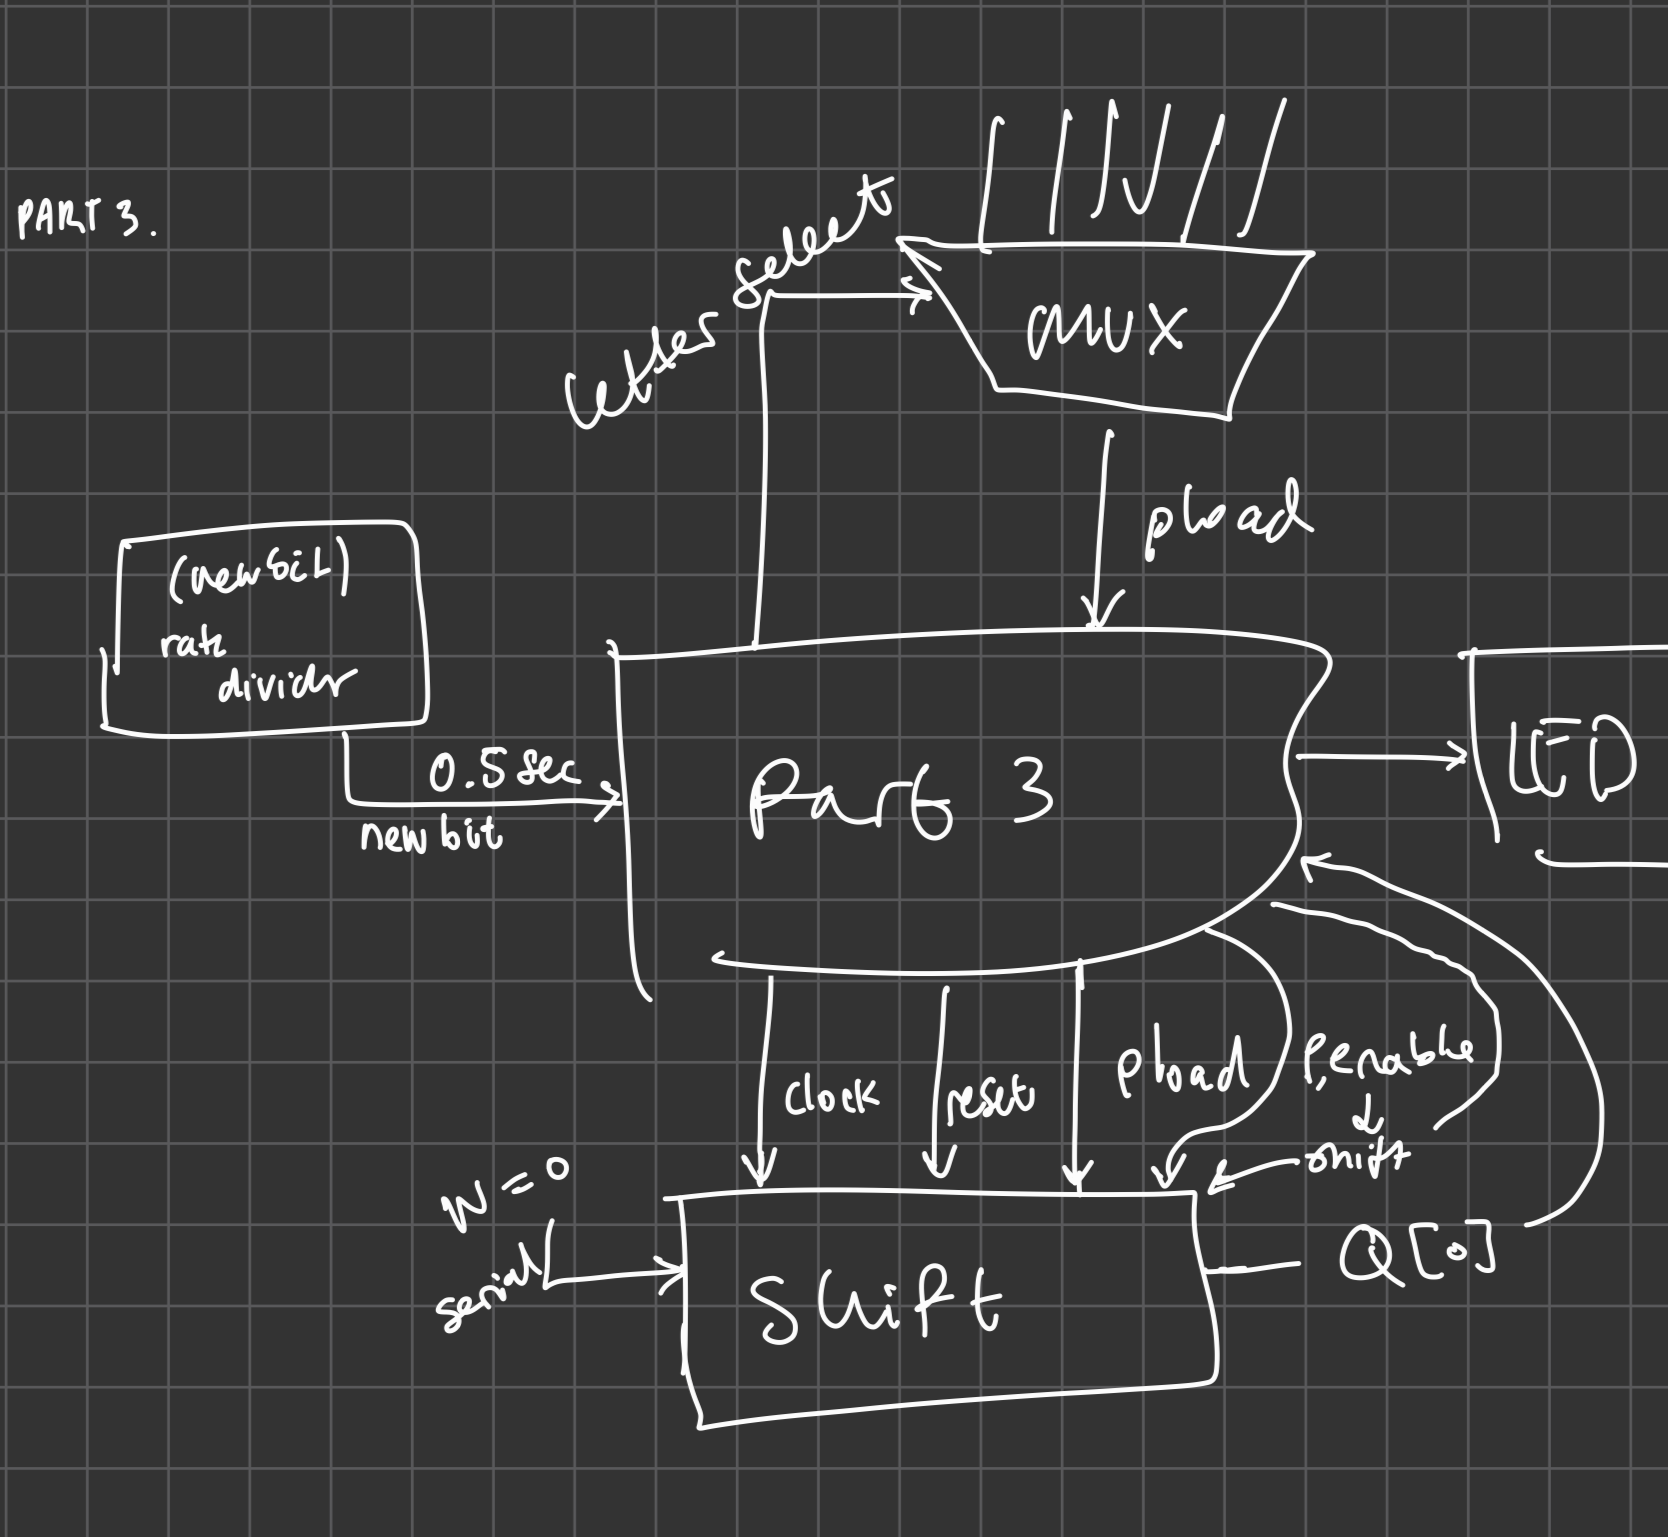 PART 3.
letter select
MUX
pload
(newbit)
rate
divider
0.5 sec
new bit
Part 3
LED
clock
reset
pload
P,enable
shift
W = 0
serial
Shift
Q[0]